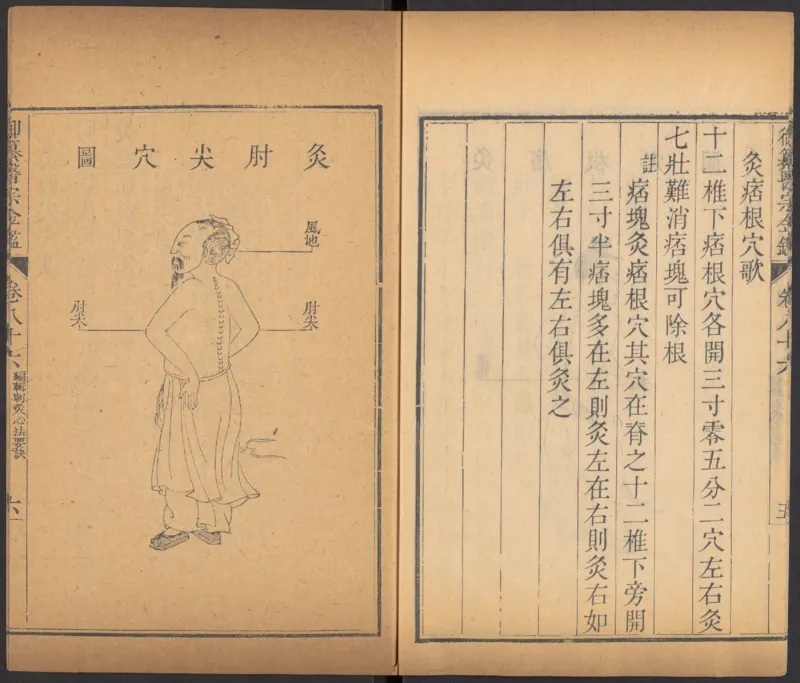 御纂醫宗金鑑 卷八十六 五
灸痞根穴歌
十二椎下痞根穴各開三寸零五分二穴左右灸
七壯難消痞塊可除根
註痞塊灸痞根穴其穴在脊之十二椎下旁開
三寸半痞塊多在左則灸左在右則灸右如
左右俱有左右俱灸之
灸肘尖穴圖
風池
肘尖
肘尖
御纂醫宗金鑑 卷八十六 編輯刺灸心法要訣 六